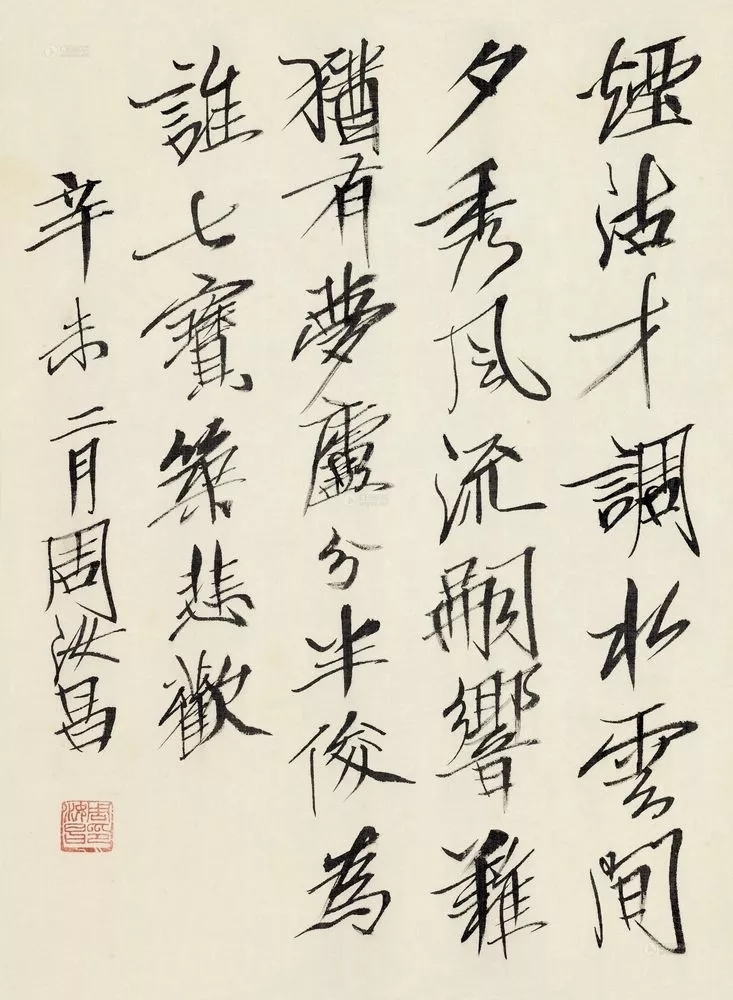 煙沽才調水雲間
夕秀風流嗣響難
猶有夢分半俊為
誰七寶築悲歡
辛未二月周汝昌
周印汝昌